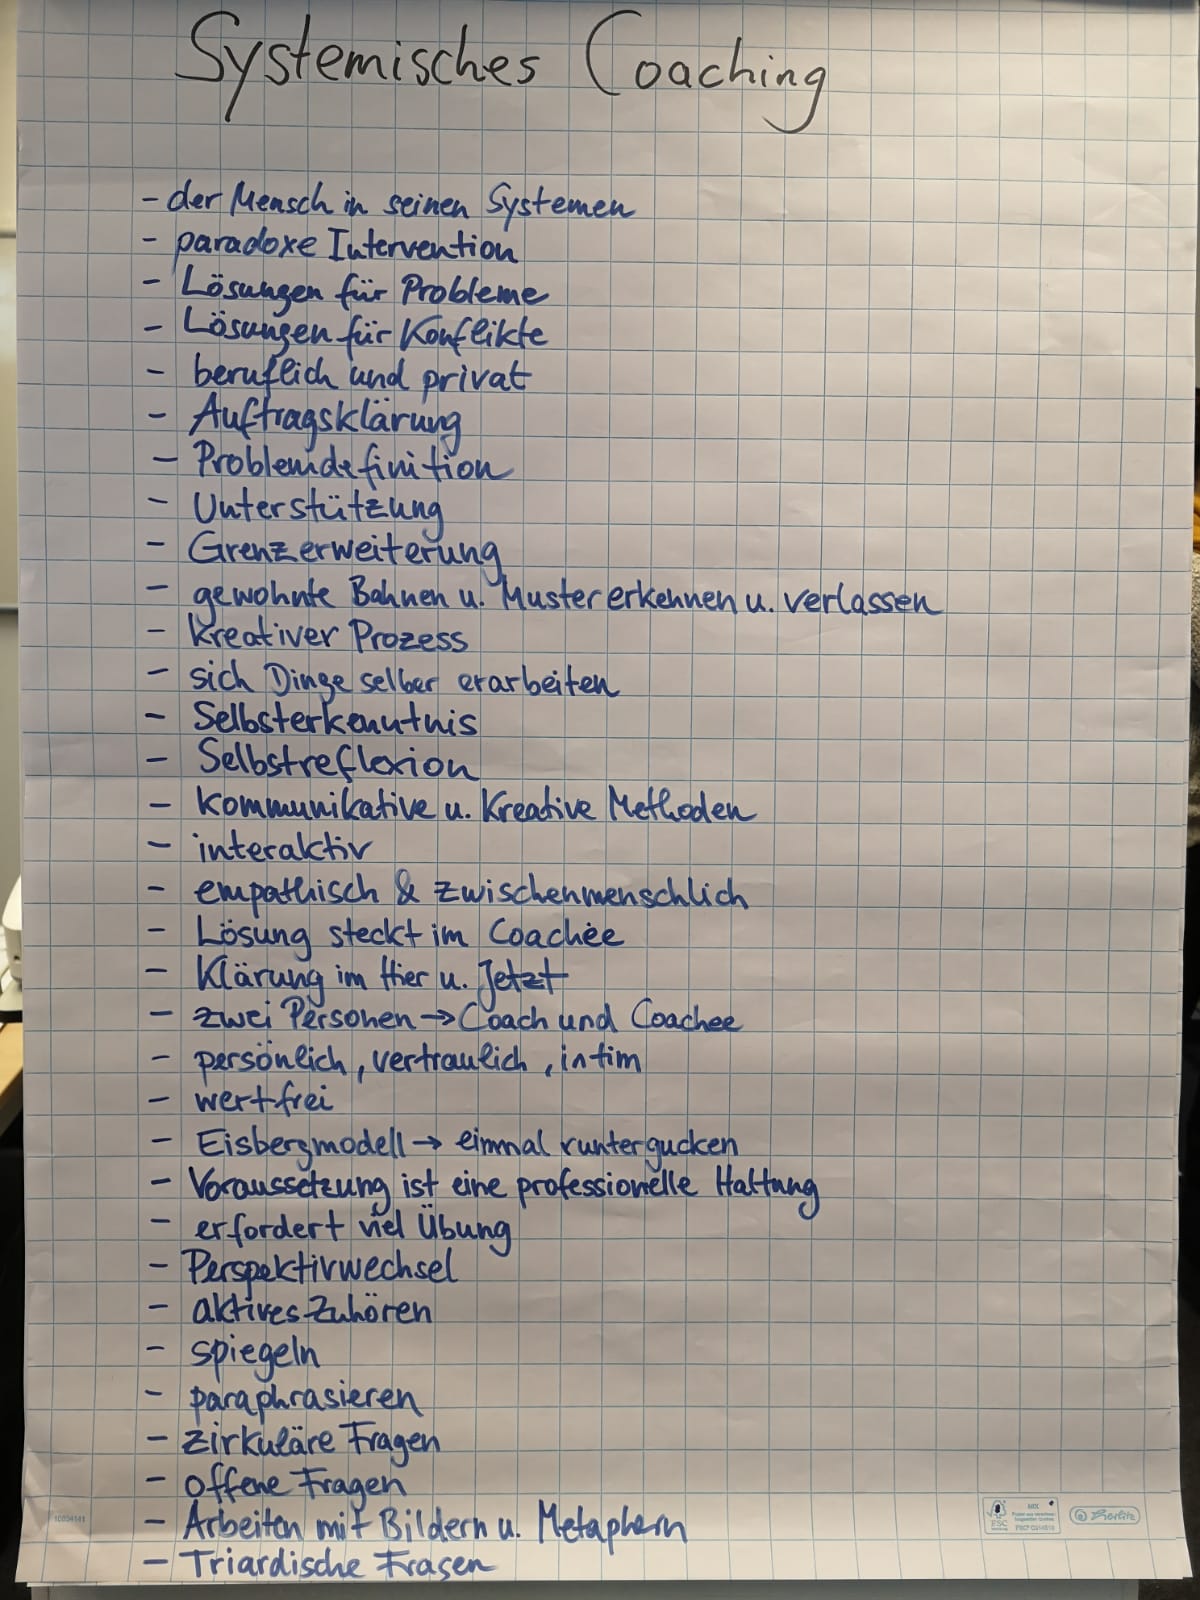 Systemisches Coaching
- der Mensch in seinen Systemen
- paradoxe Intervention
- Lösungen für Probleme
- Lösungen für Konflikte
- beruflich und privat
- Auftragsklärung
- Problemdefinition
- Unterstützung
- Grenzerweiterung
- gewohnte Bahnen u. Muster erkennen u. verlassen
- kreativer Prozess
- sich Dinge selber erarbeiten
- Selbsterkenntnis
- Selbstreflexion
- kommunikative u. kreative Methoden
- interaktiv
- empathisch & zwischenmenschlich
- Lösung steckt im Coachee
- Klärung im Hier u. Jetzt
- zwei Personen → Coach und Coachee
- persönlich, vertraulich, intim
- wertfrei
- Eisbergmodell → einmal runtergucken
- Voraussetzung ist eine professionelle Haltung
- erfordert viel Übung
- Perspektivwechsel
- aktives Zuhören
- spiegeln
- paraphrasieren
- zirkuläre Fragen
- offene Fragen
- Arbeiten mit Bildern u. Metaphern
- Triardische Fragen
FSC
MIX
herlitz